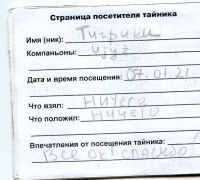 Страница посетителя тайника
Имя (ник): Тигрики
Компаньоны:
Дата и время посещения: 07.01.21
Что взял: ничего
Что положил: ничего
Впечатления от посещения тайника:
Все ок! спасибо